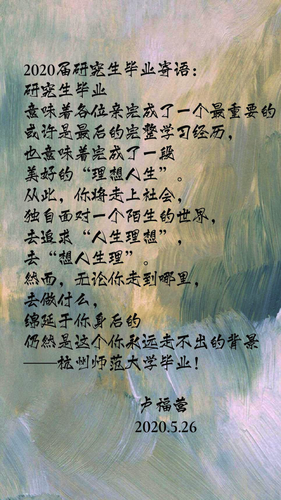 2020届研究生毕业寄语：
研究生毕业
意味着各位亲完成了一个最重要的
或许是最后的完整学习经历，
也意味着完成了一段
美好的“理想人生”。
从此，你将走上社会，
独自面对一个陌生的世界，
去追求“人生理想”，
去“想人生理”。
然而，无论你走到哪里，
去做什么，
绵延于你身后的
仍然是这个你永远走不出的背景
——杭州师范大学毕业！
卢福营
2020.5.26